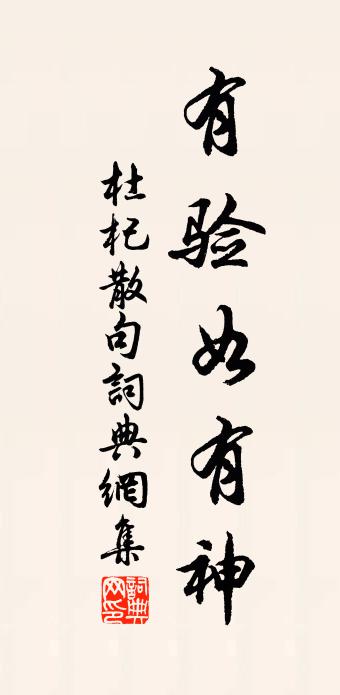 有验如有神
杜杞散句詞典網集
詞典網印